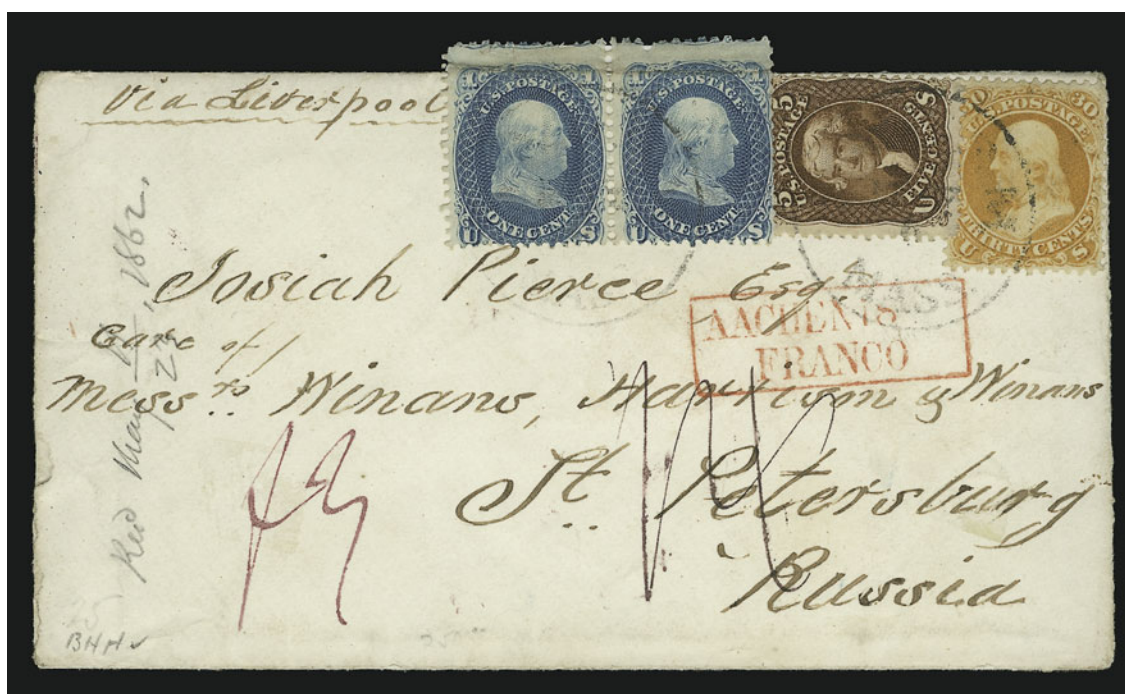 Via Liverpool
U.S. POSTAGE
ONE CENT
U S
1 1
U.S. POSTAGE
ONE CENT
U S
5 5
U.S. POSTAGE
FIVE CENTS
U S
30 30
U.S. POSTAGE
THIRTY CENTS
U S
MASS.
Josiah Pierce Esq.
AACHEN
FRANCO
Care of
Messrs. Winans, Harrison & Winans
St. Petersburg
Russia
1862.
BHH